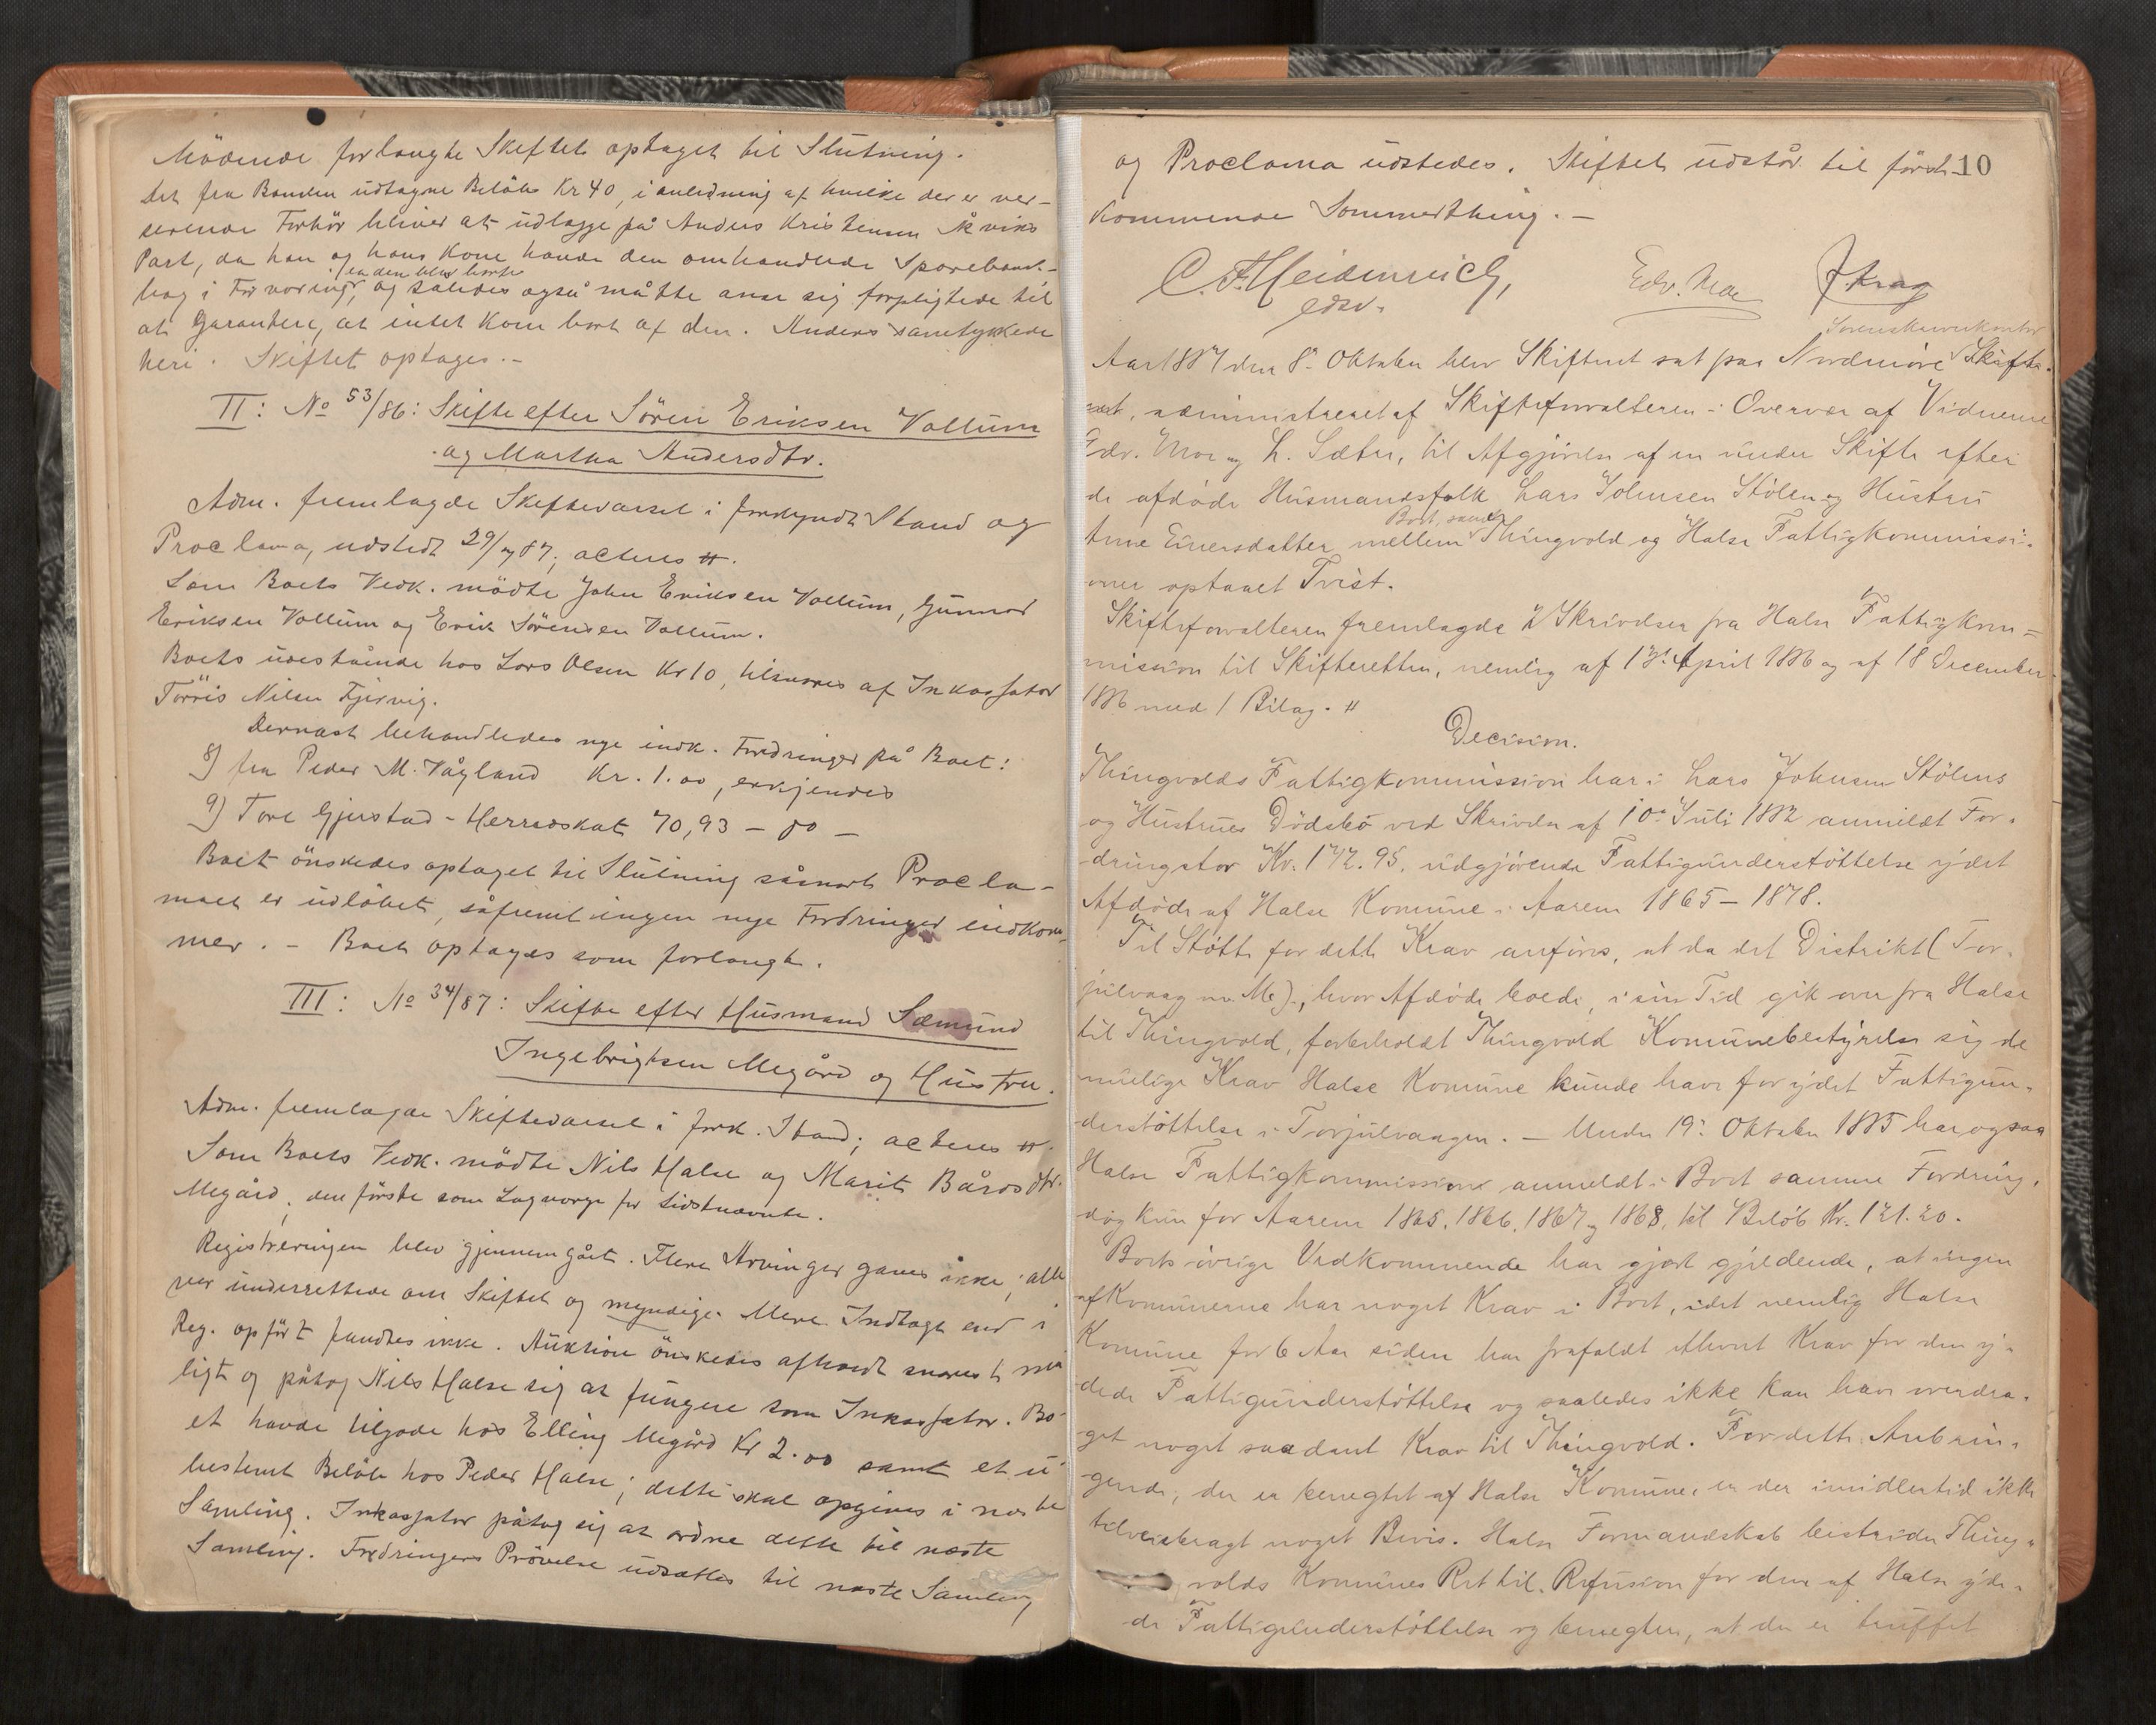 Mödende forlangte Skiftet optaget til Slutning.
Det fra Banken udtagne Belöb Kr 40, i anledning af hvilke der er ver-
serende Forhör bliver at udlægge på Anders Kristensen Åkviks
Part, da han og hans Kone havde den omhandlede Sparebank-
da den blev borte
bog i Forvaring, og således også måtte anse sig forpligtede til
at Garantere, at intet kom bort af den. Anders samtykkede
heri. Skiftet optages. -
II: No 53/86: Skifte efter Sören Eriksen Vollum
og Martha Andersdtr.
Adm. fremlagde Skiftevarsel i forkyndt Stand og
Proclama, udstedt 29/ 87; acteres #.
Som Boets Vedk. mödte John Eriksen Vollum, Gunnar
Eriksen Vollum og Erik Sörensen Vollum.
Boets udestående hos Lars Olsen Kr 10, tilsvares af Inkassator
Törris Nilsen Fjervig.
Dernæst behandledes nye indk. Fordringer på Boet:
8) fra Peder M. Vågland Kr. 1.00, erkjendes
9) Tore Gjerstad - Herredskat 70,93 - do -
Boet önskedes optaget til Slutning såsnart Procla-
maet er udlöbet, såfremt ingen nye Fordringer indkom-
mer. - Boet optages som forlangt.
III: No 34/87: Skifte efter Husmand Sæmund
Ingebrigtsen Megård og Hustru.
Adm. fremlagde Skiftevarsel i fork. Stand; acteres #.
Som Boets Vedk. mödte Nils Halse og Marit Bårdsdtr.
Megård, den förste som Lagværge for Sidstnævnte.
Registreringen blev gjennemgået. Flere Arvinger gaves ikke; alle
var underrettede om Skiftet og myndige. Mere Indtægt end i
Reg. opfört fandtes ikke. Auktion önskedes afholdt snarest mu-
ligt og påtog Nils Halse sig at fungere som Inkassator. Bo-
et havde tilgode hos Elling Megård Kr 2.00 samt et u-
bestemt Belöb hos Peder Halse; dette skal opgives i næste
Samling. Inkassator påtog sig at ordne dette til næste
Samling. Fordringers Prövelse udsættes til næste Samling
og Proclama udstedes. Skiftet udstår til först- 10
kommende Sommerthing. -
C. F. Heidenreich, Edv. Moe J Krag
edsv.
Sorenskriverkontor
Aar 1887 den 8de Oktober blev Skifteret sat paa Nordmöre Skifte-
ret, administreret af Skifteforvalteren i Overvær af Vidnerne
Edv. Moe og L. Sæter, til Afgjörelse af en under Skifte efter
de afdöde Husmandsfolk Lars Johnsen Stölen og Hustru
Boet, samt
Anne Einersdatter mellem Thingvold og Halse Fattigkommissi-
oner optaaet Tvist.
Skifteforvalteren fremlagde 2 Skrivelser fra Halse Fattigkom-
mission til Skifteretten, nemlig af 13de April 1886 og af 18 December
1886 med 1 Bilag. #
Decision.
Thingvolds Fattigkommission har i Lars Johnsen Stölens
og Hustrues Dödsbo ved Skrivelse af 10de Juli 1882 anmeldt For-
dring stor Kr. 172.95, udgjörende Fattigunderstöttelse ydet
Afdöde af Halse Komune i Aarene 1865 - 1878.
Til Stötte for dette Krav anföres, at da det Distrikt (Tor-
julvaag m. M.), hvor Afdöde boede, i sin Tid gik over fra Halse
til Thingvold, forbeholdt Thingvold Komunebestyrelse sig de
mulige Krav Halse Komune kunde have for ydet Fattigun-
derstöttelse i Torjulvaagen. - Under 19de Oktober 1885 har ogsaa
Halse Fattigkommission anmeldt i Boet samme Fordring,
dog kun for Aarene 1865. 1866. 1867 og 1868, til Belöb Kr. 121.20.
Boets övrige Vedkommende har gjort gjeldende, at ingen
af Komunerne har noget Krav i Boet, idet nemlig Halse
Komune for 6 Aar siden har frafaldt ethvert Krav for den y-
dede Fattigunderstöttelse og saaledes ikke kan have overdra-
get noget saadant Krav til Thingvold. For dette Anbrin-
gende, der er benegtet af Halse Komune, er der imidlertid ikke
tilveiebragt noget Bevis. Halse Formandskab bestrider Thing-
volds Komunes Ret til Refusion for den af Halse yde-
de Fattigunderstöttelse og benegter, at der er truffet